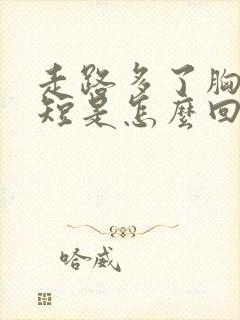 走路多了胸
短是怎麼回
哈威